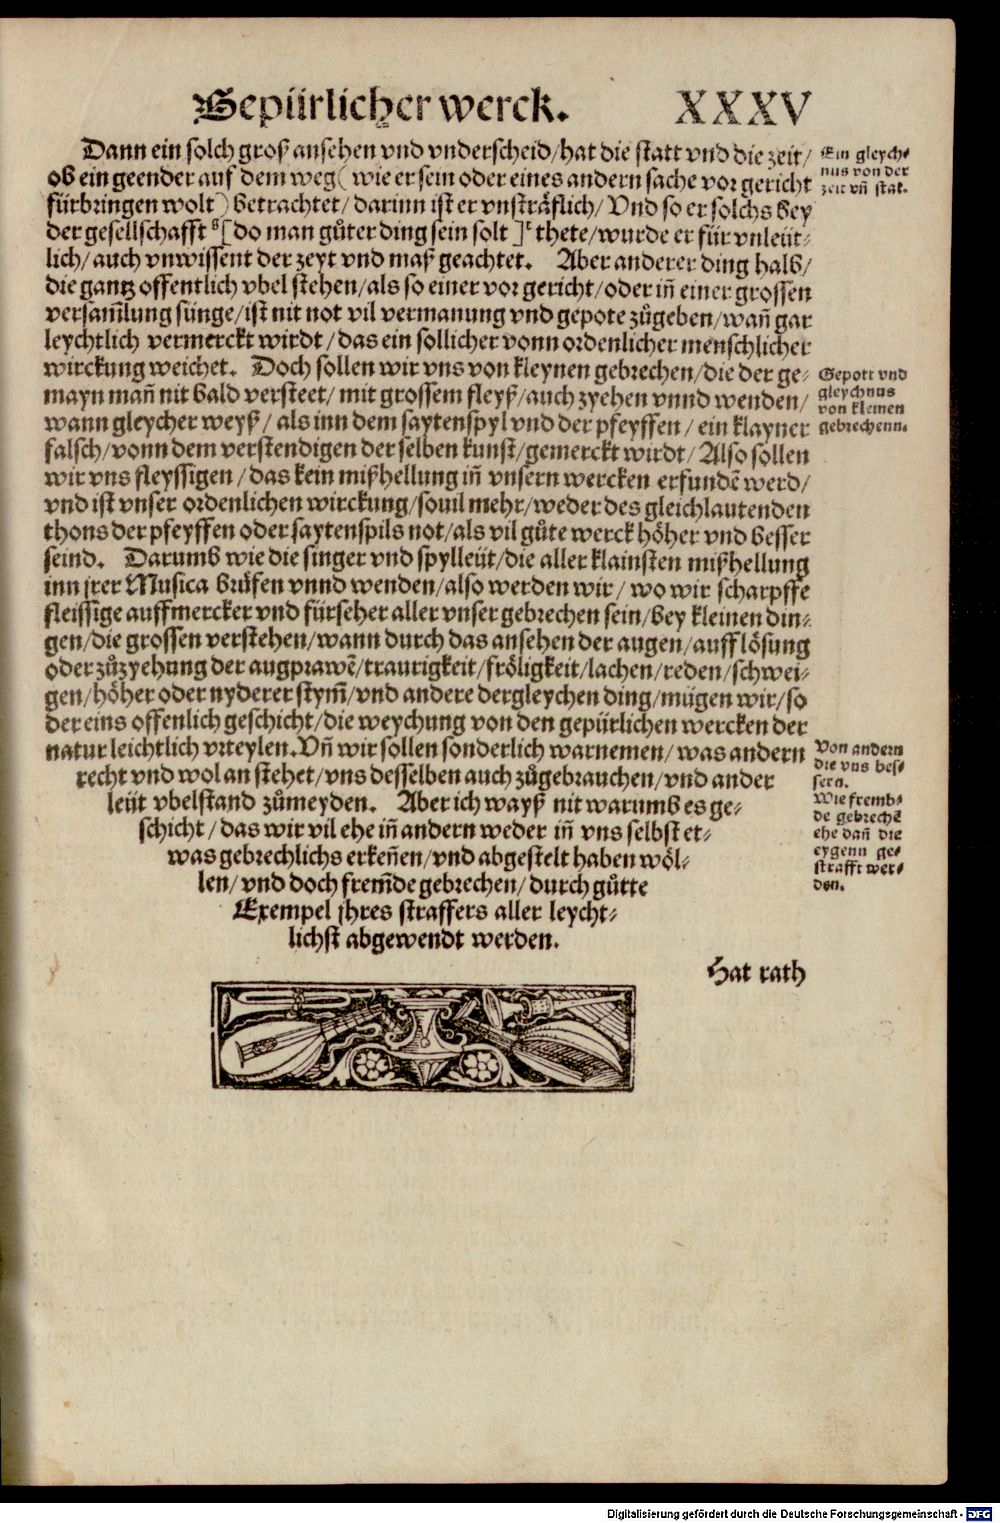 Gepürlicher werck. XXXV
Dann ein solch groß ansehen vnd vnderscheid/hat die statt vnd die zeit/
ob ein geender auf dem weg (wie er sein oder eines andern sache vor gericht
fürbringen wolt) betrachtet/darinn ist er vnsträflich/Vnd so er solchs bey
der gesellschafft [do man gůter ding sein solt] thete/wurde er für vnleüt⸗
lich/auch vnwissent der zeyt vnd maß geachtet. Aber anderer ding halb/
die gantz offentlich vbel stehen/als so einer vor gericht/oder iñ einer grossen
versam̃lung sünge/ist nit not vil vermanung vnd gepote zůgeben/wañ gar
leychtlich vermerckt wirdt/das ein sollicher vonn ordenlicher menschlicher
wirckung weichet. Doch sollen wir vns von kleynen gebrechen/die der ge⸗
mayn mañ nit bald versteet/mit grossem fleyß/auch zyehen vnnd wenden/
wann gleycher weyß/als inn dem saytenspyl vnd der pfeyffen/ein klayner
falsch/vonn dem verstendigen der selben kunst/gemerckt wirdt/Also sollen
wir vns fleyssigen/das kein mißhellung iñ vnsern wercken erfundẽ werd/
vnd ist vnser ordenlichen wirckung/souil mehr/weder des gleichlautenden
thons der pfeyffen oder saytenspils not/als vil gůte werck höher vnd besser
seind. Darumb wie die singer vnd spylleüt/die aller klainsten mißhellung
inn jrer Musica brüfen vnnd wenden/also werden wir/wo wir scharpffe
fleissige auffmercker vnd fürseher aller vnser gebrechen sein/bey kleinen din⸗
gen/die grossen verstehen/wann durch das ansehen der augen/aufflösung
oder zůzyehung der augprawẽ/traurigkeit/fröligkeit/lachen/reden/schwei⸗
gen/höher oder nyderer stym̃/vnd andere dergleychen ding/mügen wir/so
der eins offenlich geschicht/die weychung von den gepürlichen wercken der
natur leichtlich vrteylen. Vñ wir sollen sonderlich warnemen/was andern
recht vnd wol an stehet/vns desselben auch zůgebrauchen/vnd ander
leüt vbelstand zůmeyden. Aber ich wayß nit warumb es ge⸗
schicht/das wir vil ehe iñ andern weder iñ vns selbst et⸗
was gebrechlichs erkeñen/vnd abgestelt haben wöl⸗
len/vnd doch frem̃de gebrechen/durch gůtte
Exempel jhres straffers aller leycht⸗
lichst abgewendt werden.
Hat rath
Ein gleych⸗
nus von der
zeit vñ stat.
Gepott vnd
gleychnus
von kleinen
gebrechenn.
Von andern
die vns bes⸗
sern.
Wie fremb⸗
de gebrechẽ
ehe dañ die
eygenn ge⸗
strafft wer⸗
den.
Digitalisierung gefördert durch die Deutsche Forschungsgemeinschaft - DFG